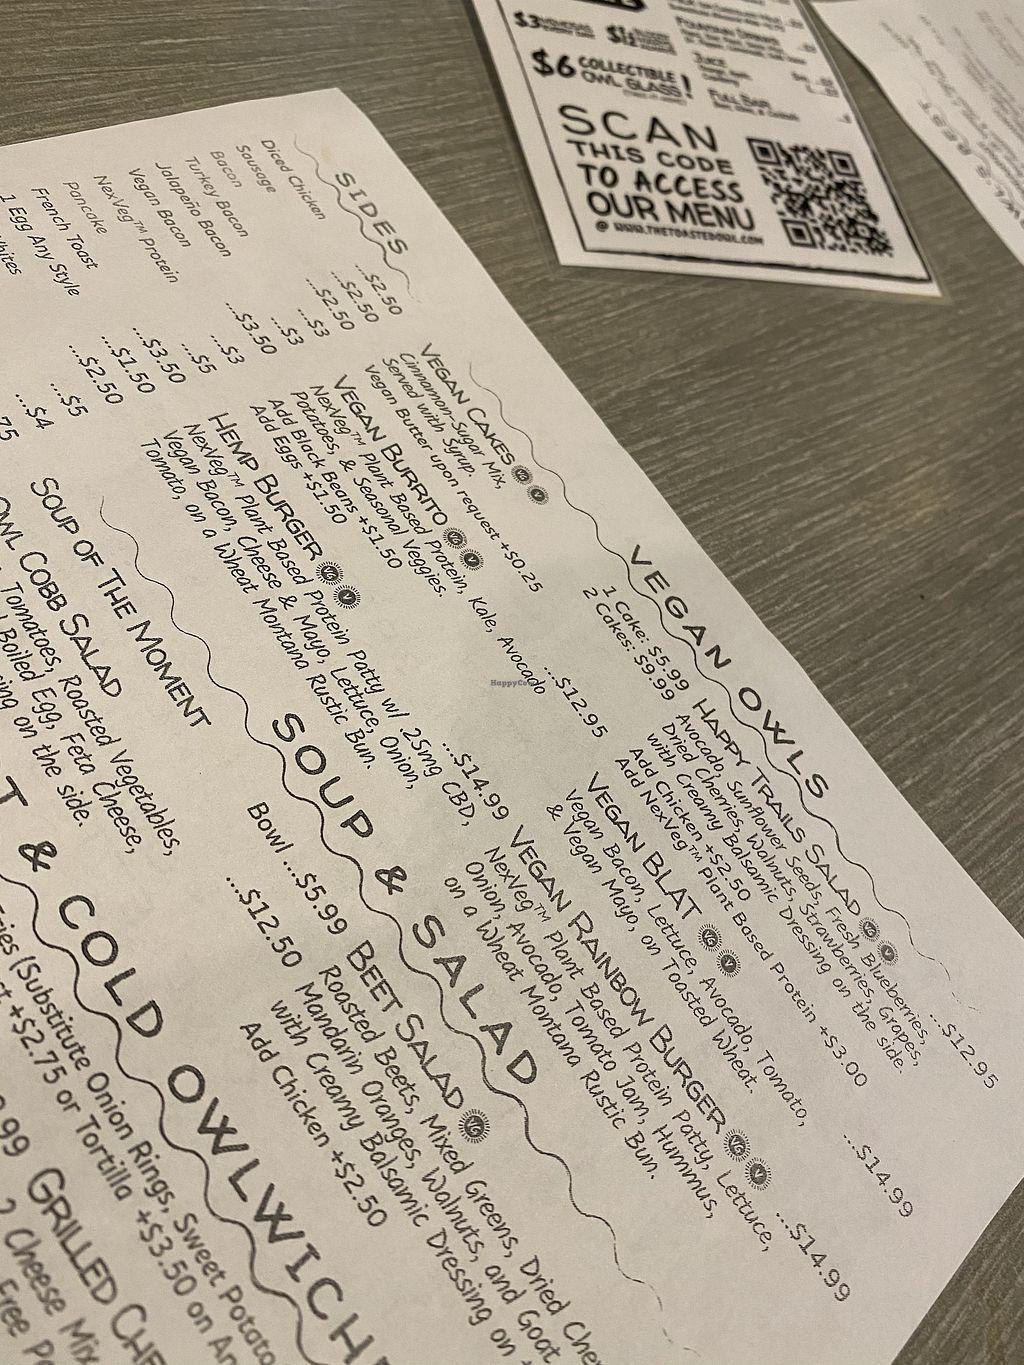 $6 COLLECTIBLE
OWL GLASS!
JUICE
FULL BAR
SCAN
THIS CODE
TO ACCESS
OUR MENU
@ WWW.THETOASTEDOWL.COM
SIDES
Diced Chicken ...$2.50
Sausage ...$2.50
Bacon ...$2.50
Turkey Bacon ...$3
Jalapeño Bacon ...$3
Vegan Bacon ...$3.50
NexVeg™ Protein ...$3
Pancake ...$5
French Toast ...$3.50
1 Egg Any Style ...$1.50
...$2.50
...$5
...$4
VEGAN OWLS
VEGAN CAKES VG V
Cinnamon-Sugar Mix,
Served with Syrup.
Vegan Butter upon request +$0.25
1 Cake: $5.99
2 Cakes: $9.99
VEGAN BURRITO VG V
NexVeg™ Plant Based Protein, Kale, Avocado
Potatoes, & Seasonal Veggies.
Add Black Beans +$1.50
Add Eggs +$1.50
...$12.95
HEMP BURGER VG V
NexVeg™ Plant Based Protein Patty w/ 25mg CBD,
Vegan Bacon, Cheese & Mayo, Lettuce, Onion,
Tomato, on a Wheat Montana Rustic Bun.
...$14.99
HAPPY TRAILS SALAD VG V
Avocado, Sunflower Seeds, Fresh Blueberries,
Dried Cherries, Walnuts, Strawberries, Grapes,
with Creamy Balsamic Dressing on the side.
Add Chicken +$2.50
Add NexVeg™ Plant Based Protein +$3.00
...$12.95
VEGAN BLAT VG V
Vegan Bacon, Lettuce, Avocado, Tomato,
& Vegan Mayo, on Toasted Wheat.
...$14.99
VEGAN RAINBOW BURGER VG V
NexVeg™ Plant Based Protein Patty, Lettuce,
Onion, Avocado, Tomato Jam, Hummus,
on a Wheat Montana Rustic Bun.
...$14.99
SOUP & SALAD
SOUP OF THE MOMENT
Bowl ...$5.99
OWL COBB SALAD
Tomatoes, Roasted Vegetables,
Boiled Egg, Feta Cheese,
on the side.
...$12.50
BEET SALAD VG
Roasted Beets, Mixed Greens, Dried
Mandarin Oranges, Walnuts, and Goat
with Creamy Balsamic Dressing on
Add Chicken +$2.50
& COLD OWLWICH
(Substitute Onion Rings, Sweet Potato
+$2.75 or Tortilla +$3.50 on
GRILLED
2 Cheese Mix
Free
HappyCow